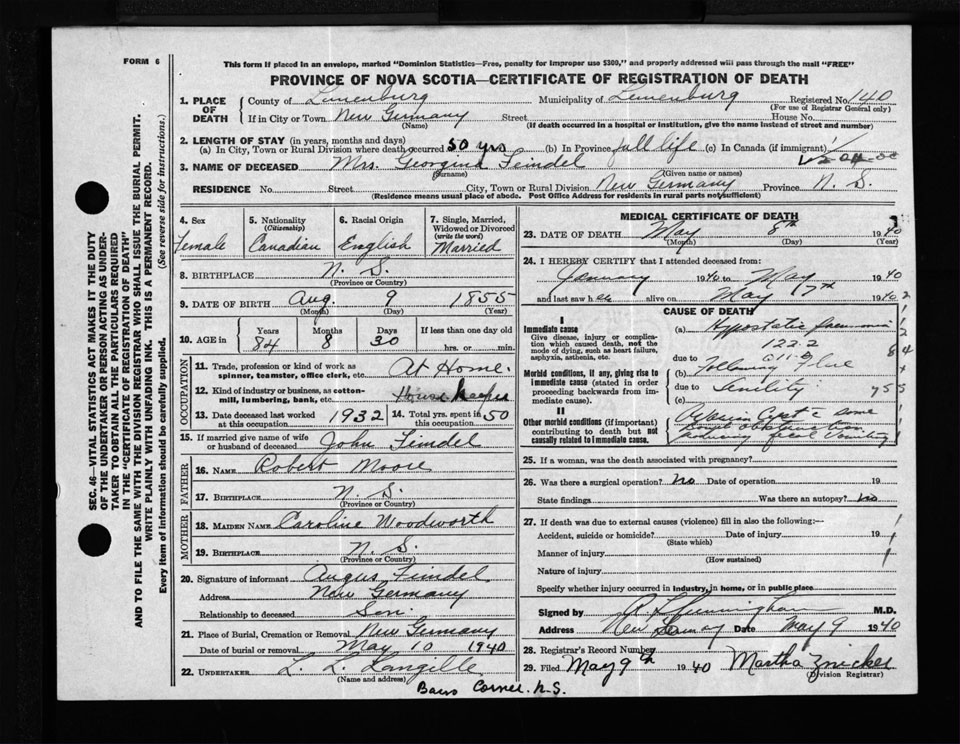 FORM 6
This form if placed in an envelope, marked "Dominion Statistics—Free, penalty for improper use $300," and properly addressed will pass through the mail "FREE"
PROVINCE OF NOVA SCOTIA—CERTIFICATE OF REGISTRATION OF DEATH
1. PLACE OF DEATH
County of Lunenburg Municipality of Lunenburg Registered No. 140
(For use of Registrar General only)
If in City or Town New Germany Street House No.
(Name) (If death occurred in a hospital or institution, give the name instead of street and number)
2. LENGTH OF STAY (in years, months and days)
(a) In City, Town or Rural Division where death occurred 50 yrs (b) In Province full life (c) In Canada (if immigrant)
3. NAME OF DECEASED Mrs. Georgina Feindel
(Surname) (Given name or names)
RESIDENCE No. Street City, Town or Rural Division New Germany Province N. S.
(Residence means usual place of abode. Post Office Address for residents in rural parts not sufficient)
4. Sex
Female
5. Nationality
(Citizenship)
Canadian
6. Racial Origin
English
7. Single, Married, Widowed or Divorced
(write the word)
Married
8. BIRTHPLACE N. S.
(Province or Country)
9. DATE OF BIRTH Aug. 9 1855
(Month) (Day) (Year)
10. AGE in Years Months Days If less than one day old
84 8 30 hrs. or min.
OCCUPATION
11. Trade, profession or kind of work as spinner, teamster, office clerk, etc. At Home.
12. Kind of industry or business, as cotton-mill, lumbering, bank, etc. House keeper
13. Date deceased last worked at this occupation 1932 14. Total yrs. spent in this occupation 50
15. If married give name of wife or husband of deceased John Feindel
FATHER
16. NAME Robert Moore
17. BIRTHPLACE N. S.
(Province or Country)
MOTHER
18. MAIDEN NAME Caroline Woodworth
19. BIRTHPLACE N. S.
(Province or Country)
20. Signature of informant Angus Feindel
Address New Germany
Relationship to deceased Son.
21. Place of Burial, Cremation or Removal New Germany
Date of burial or removal May 10 1940
22. UNDERTAKER L. L. Langille
(Name and address)
Barss Corner. N.S.
MEDICAL CERTIFICATE OF DEATH
23. DATE OF DEATH May 8th 1940
(Month) (Day) (Year)
24. I HEREBY CERTIFY that I attended deceased from:
January 1940 to May 1940
and last saw her alive on May 7th 1940
CAUSE OF DEATH
I
Immediate cause
Give disease, injury or complication which caused death, not the mode of dying, such as heart failure, asphyxia, asthenia, etc.
(a) Hypostatic pneumonia
122.2
due to
Morbid conditions, if any, giving rise to immediate cause (stated in order proceeding backwards from immediate cause).
(b) Following Flue
due to Senility
(c)
II
Other morbid conditions (if important) contributing to death but not causally related to immediate cause.
Ovarian Cyst & some
bowel obstruction
producing fecal vomiting
25. If a woman, was the death associated with pregnancy?
26. Was there a surgical operation? no Date of operation 19
State findings Was there an autopsy? no
27. If death was due to external causes (violence) fill in also the following:—
Accident, suicide or homicide? Date of injury 19
(State which)
Manner of injury
(How sustained)
Nature of injury
Specify whether injury occurred in industry, in home, or in public place
Signed by Cunningham M.D.
Address New Germany Date May 9 1940
28. Registrar's Record Number
29. Filed May 9th 1940 Martha Zwicker
(Division Registrar)
SEC. 46—VITAL STATISTICS ACT MAKES IT THE DUTY
OF THE UNDERTAKER OR PERSON ACTING AS UNDER-
TAKER TO OBTAIN ALL THE PARTICULARS REQUIRED
IN THE "CERTIFICATE OF REGISTRATION OF DEATH"
AND TO FILE THE SAME WITH THE DIVISION REGISTRAR WHO SHALL ISSUE THE BURIAL PERMIT.
WRITE PLAINLY WITH UNFADING INK. THIS IS A PERMANENT RECORD.
Every item of information should be carefully supplied. (See reverse side for instructions.)